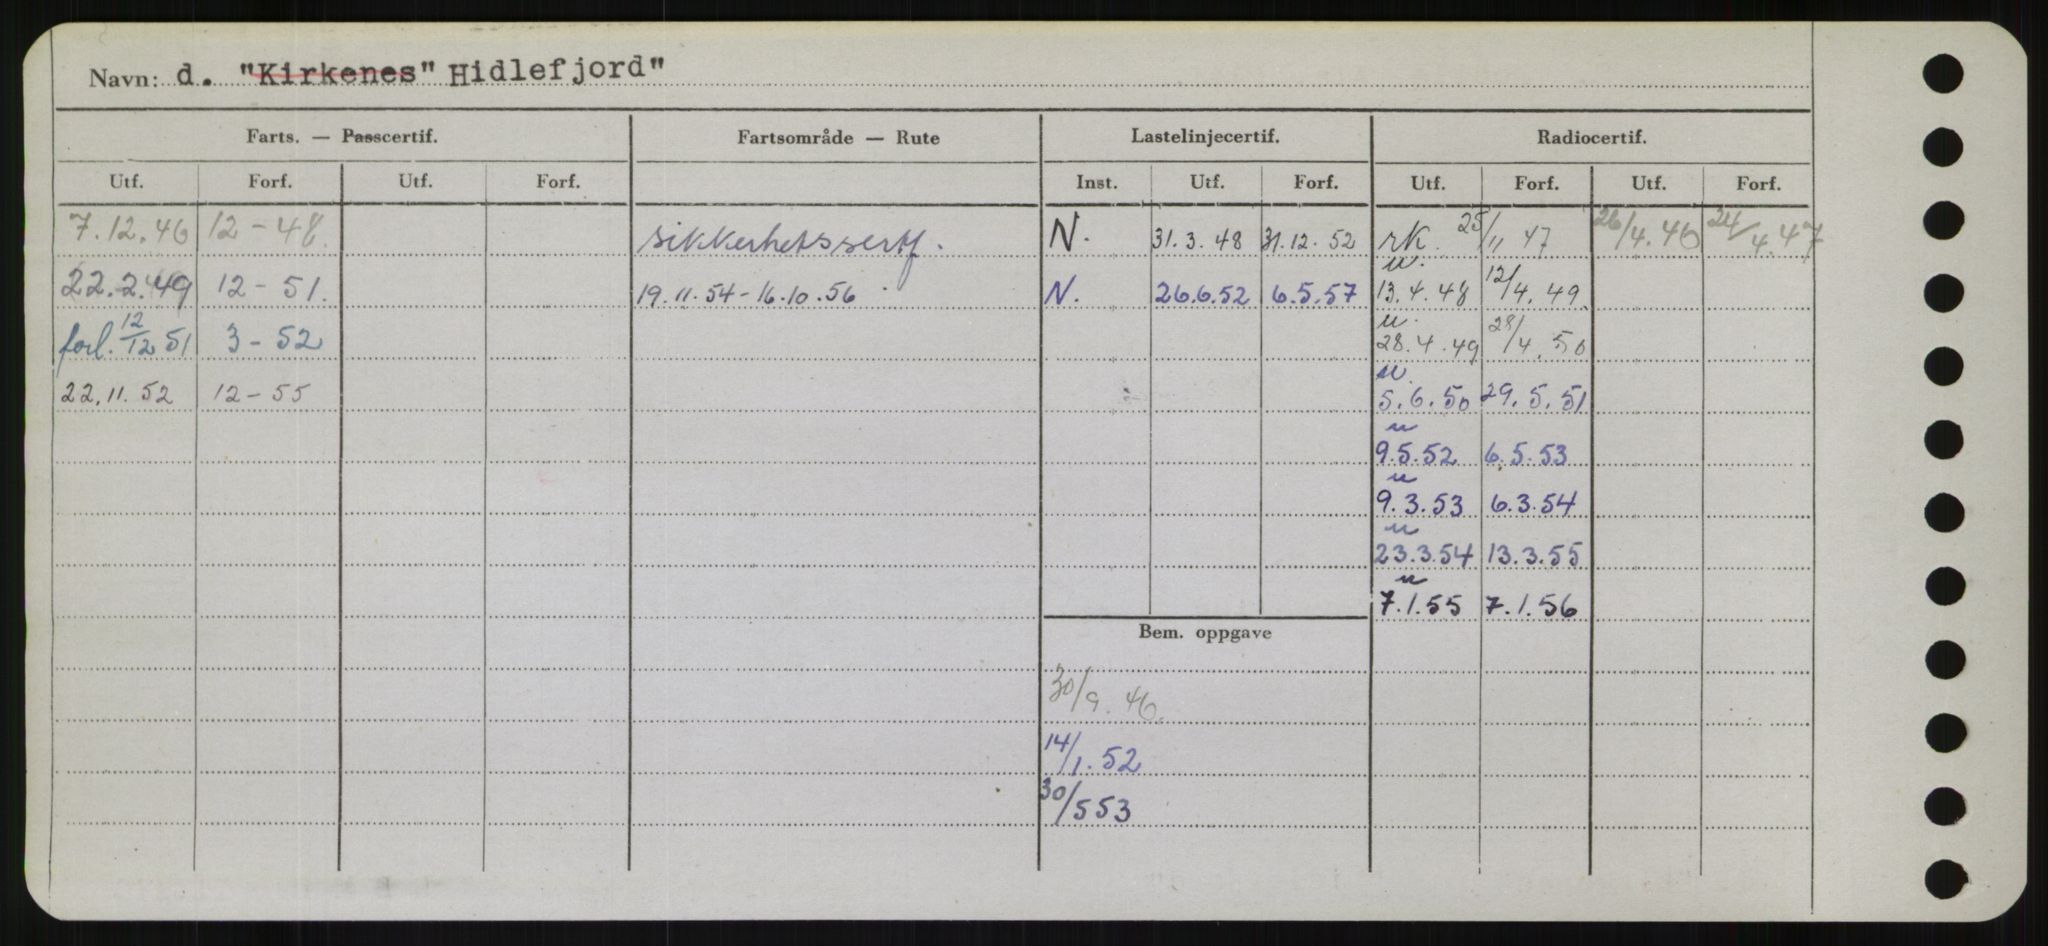 Navn: d. "Kirkenes" Hidlefjord"
Farts. — Passcertif. Fartsområde — Rute Lastelinjecertif. Radiocertif.
Utf. Forf. Utf. Forf. Inst. Utf. Forf. Utf. Forf. Utf. Forf.
7.12.46 12-48. sikkerhetssertf. N. 31.3.48 31.12.52 rk. 25/11 47 26/4.46 24/4.47
22.2.49 12-51. 19.11.54-16.10.56 N. 26.6.52 6.5.57 u. 13.4.48 12/4.49
forl. 12/12 51 3-52 u. 28.4.49 28/4.50
22.11.52 12-55 u. 5.6.50 29.5.51
u 9.5.52 6.5.53
u 9.3.53 6.3.54
u 23.3.54 13.3.55
u 7.1.55 7.1.56
Bem. oppgave
30/9.46.
14/1.52
30/553